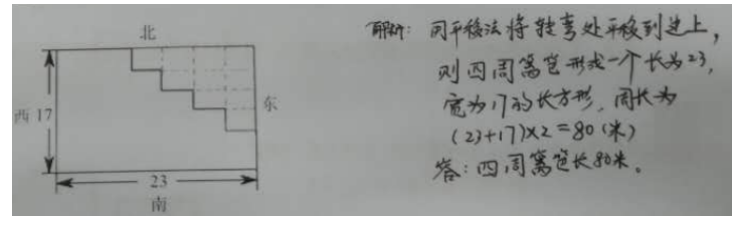 北
西 17
东
23
南
解析：用平移法将转弯处平移到边上，
则四周篱笆形成一个长为23，
宽为17的长方形，周长为
(23+17)×2=80(米)
答：四周篱笆长80米。